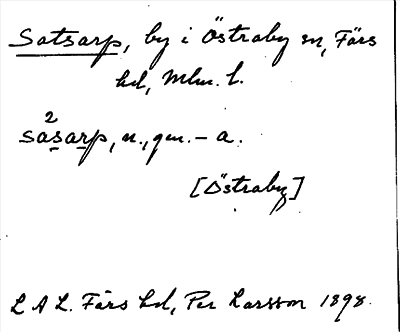 Satsarp, by i Östraby sn, Färs
hd, Mlm. l.
sa²sarp, n., gm. – a.
[Östraby]
L A L. Färs hd, Per Larsson 1898.